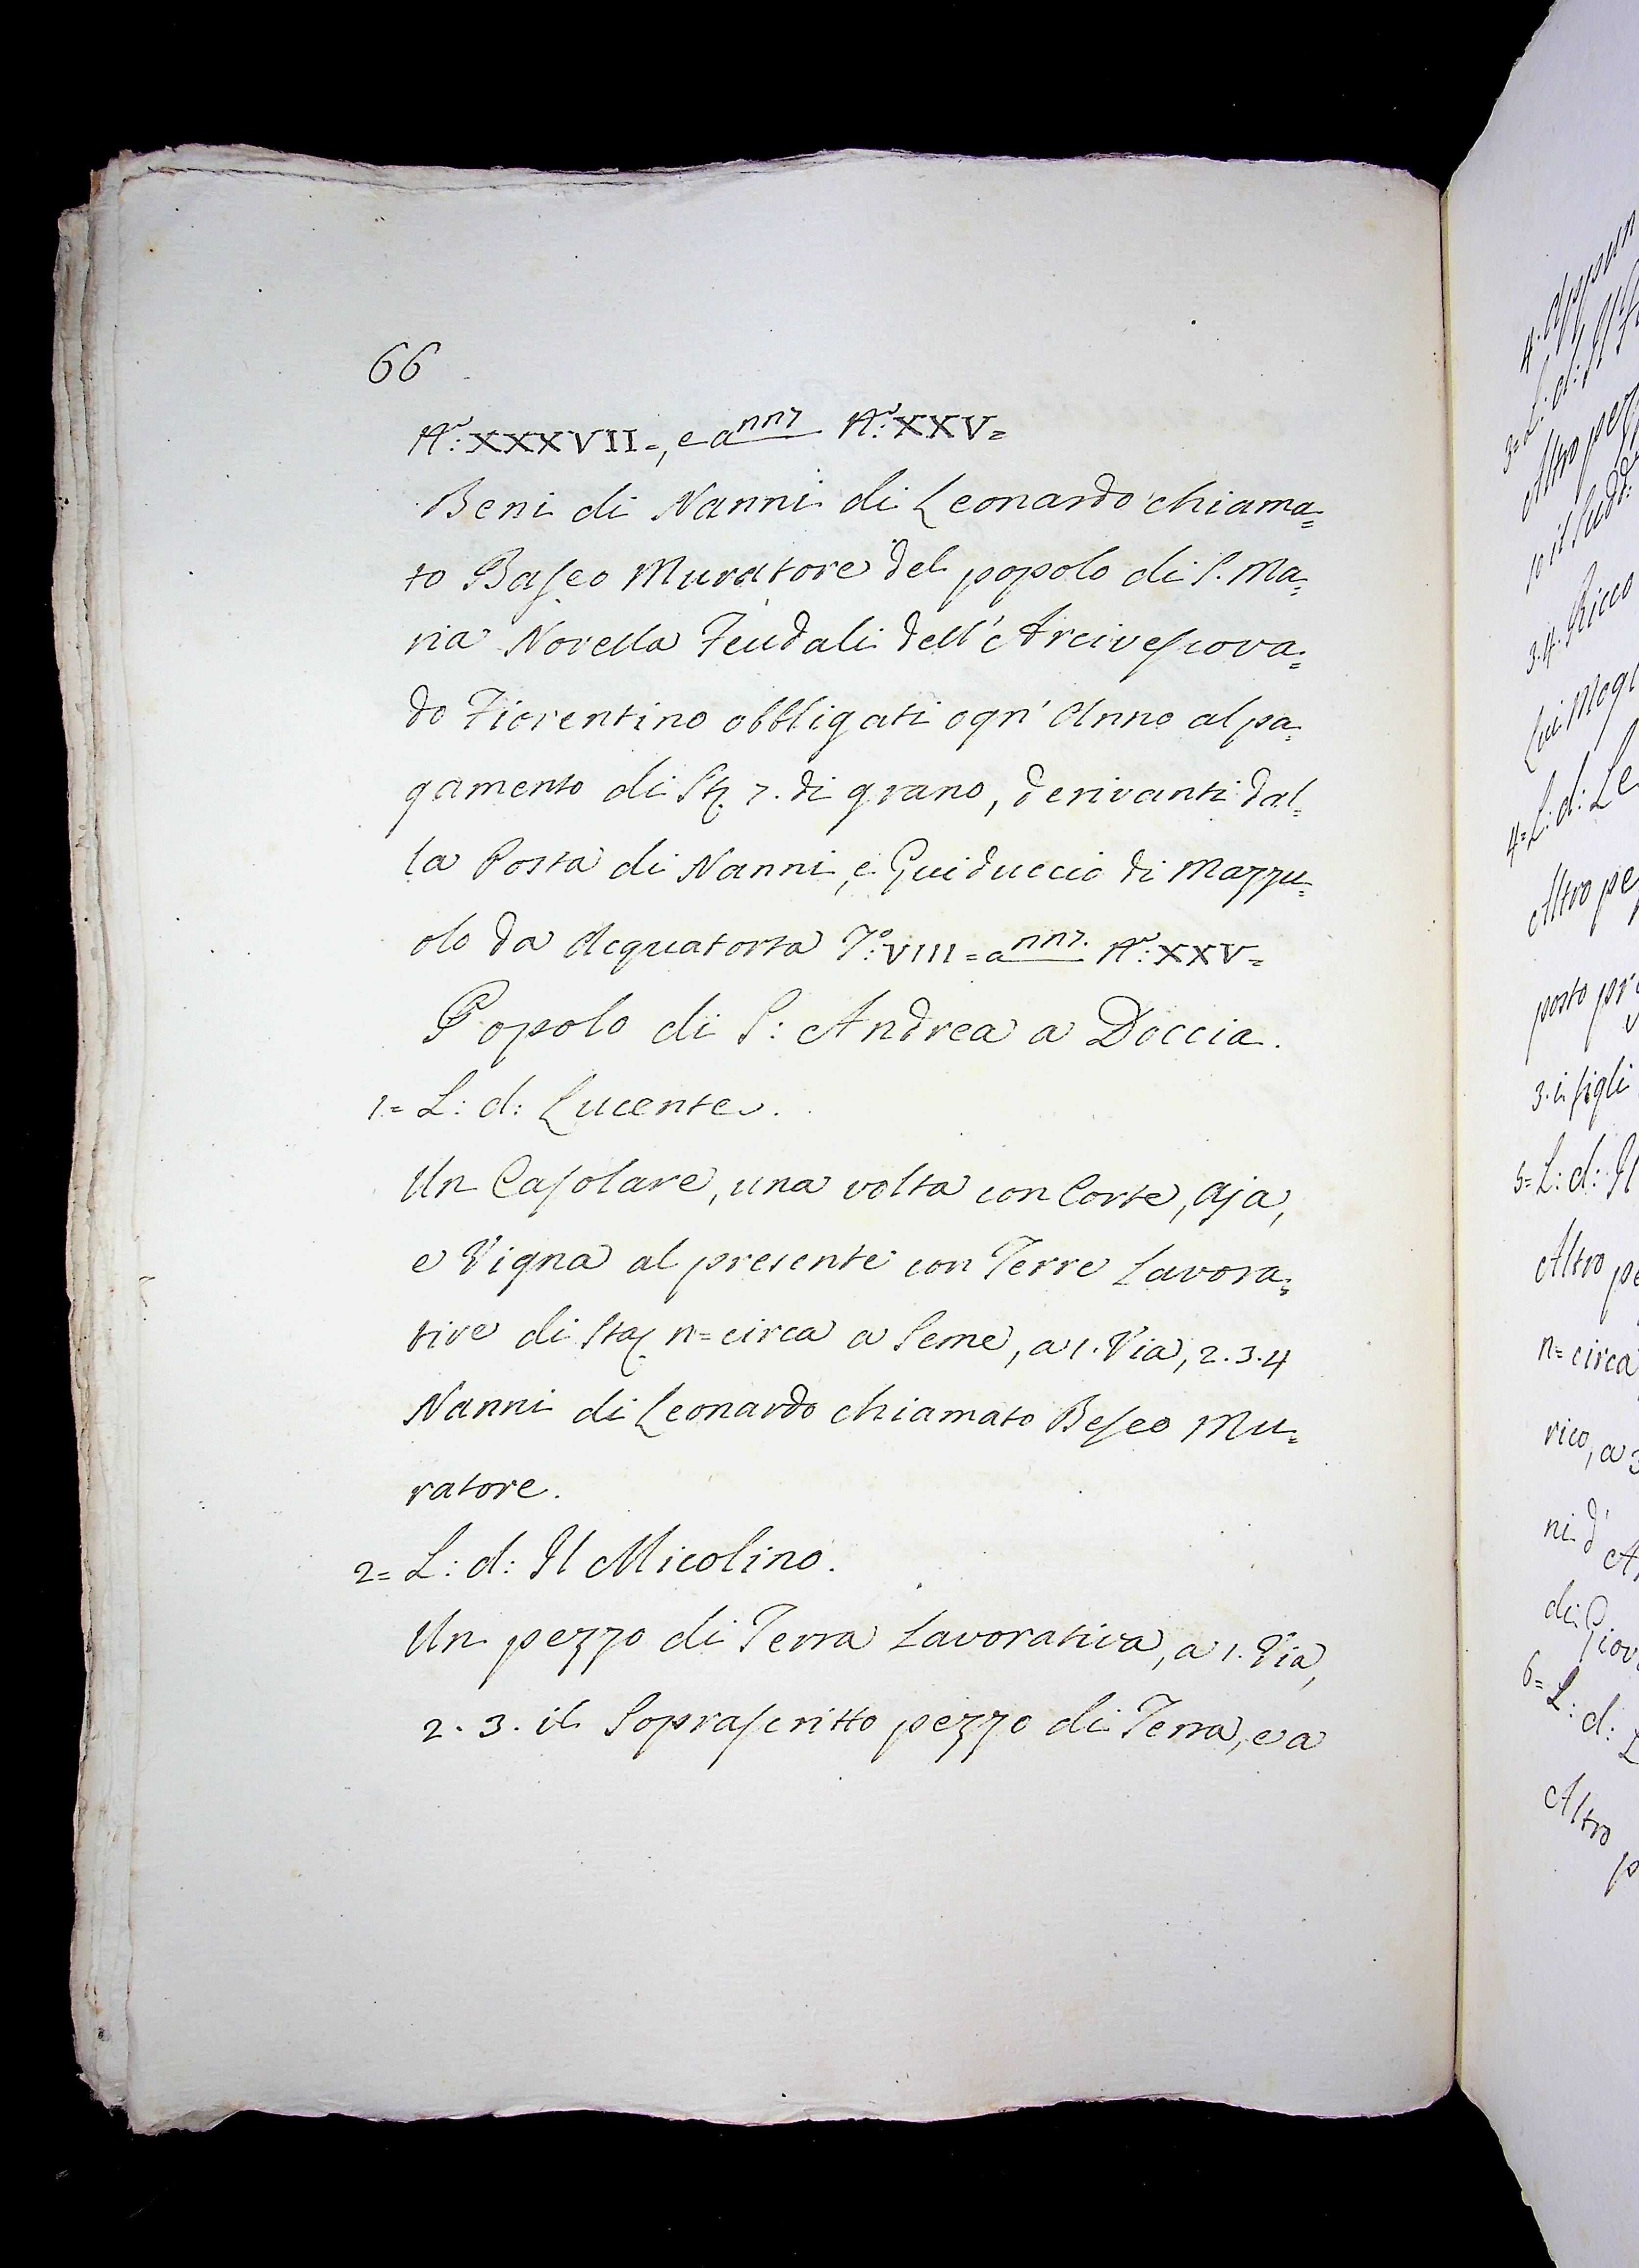 66
Aʳ: XXXVII=, e a nnj Aʳ: XXV=
Beni di Nanni di Leonardo chiama=
to Baseo Muratore del popolo di S. Ma=
ria Novella Feudali dell'Arcivescova=
do Fiorentino obbligati ogn'Anno al pa=
gamento di St. 7. di grano, derivanti dal=
la Posta di Nanni, e Guiduccio di Mazzu=
olo da Acquatorta Tº: VIII = a nnj. Aʳ: XXV=
Popolo di S: Andrea a Doccia.
1.= L: d: Lucente.
Un Casolare, una volta con Corte, Aja,
e Vigna al presente con Terre Lavora=
tive di Sta. n= circa a Seme, a 1. Via, 2. 3. 4
Nanni di Leonardo chiamato Beseo Mu=
ratore.
2= L: d: Il Micolino.
Un pezzo di Terra Lavorativa, a 1. Via,
2. 3. il Soprascritto pezzo di Terra, e a
3=
Altro
3. 4. Ricco
4= L: d: Le
Altro pe
posto pr
3. i figli
5= L: d: Il
Altro pe
n= circa
rico, a 3
ni d'
di Giov
6= L: d:
Altro p